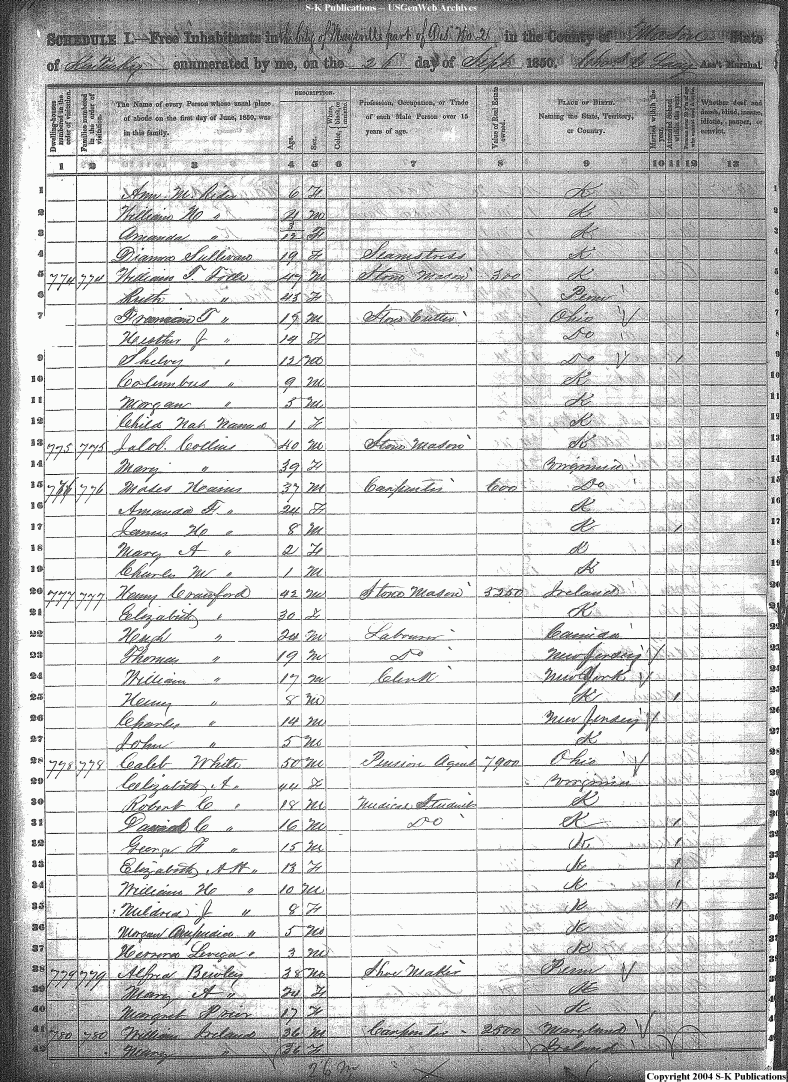 S-K Publications -- USGenWeb Archives
SCHEDULE I.—Free Inhabitants in the City of Maysville part of Dis. No. 2 in the County of Mason State
of Kentucky enumerated by me, on the 26 day of Sept 1850. Ass't Marshal.
Dwelling-houses numbered in the order of visitation.
Families numbered in the order of visitation.
The Name of every Person whose usual place of abode on the first day of June, 1850, was in this family.
DESCRIPTION.
Age.
Sex.
Color,
Profession, Occupation, or Trade of each Male Person over 15 years of age.
Value of Real Estate owned.
PLACE OF BIRTH. Naming the State, Territory, or Country.
Married within the year.
Attended School within the year.
Whether deaf and dumb, blind, insane, idiotic, pauper, or convict.
1 2 3 4 5 6 7 8 9 10 11 12 13
1 Ann M. 6 F K
2 William H " 4 M K
3 Amanda " 2/12 F K
4 Sullivan 19 F Seamstress K
5 774 774 William T. 47 M Stone Mason 300 K
6 Ruth " 45 F Penn
7 T " 19 M Stone Cutter Ohio
J " 14 F Do
9 Shelvy " 12 M Do 1
10 Columbus " 9 M K
11 Morgan " 5 M K
12 Child Not Named 1 F K
13 775 775 Jacob Collins 40 M Stone Mason K
14 Mary " 39 F Virginia
15 776 776 Moses 37 M Carpenter 600 Do
16 Amanda F. " 24 F K
17 James H " 8 M K 1
18 Mary A " 2 F K
19 Charles M " 1 M K
20 777 777 Henry Crawford 42 M Stone Mason 3250 Ireland
21 Elizabeth " 30 F K
22 Hugh " 24 M Labourer Canida
23 Thomas " 19 M Do New Jersey
24 William " 17 M Clerk New York
25 Henry " 8 M K 1
26 Charles " 14 M New Jersey
27 John " 5 M K
28 778 778 Caleb White 50 M Pension Agent 7900 Ohio
29 Elizabeth A. " 44 F Virginia
30 Robert C " 18 M Medical Student K
31 Daniel C " 16 M Do K 1
32 George F " 15 M K 1
33 Elizabeth A H " 13 F K 1
34 William H " 10 M K 1
35 Mildred J " 8 F K 1
36 Morgan " 5 M K
37 " 3 M K
38 779 779 Alfred Bewley 38 M Shoe Maker Penn
39 Mary A " 24 F K
40 Margret Prior 17 F K
41 780 780 William Ireland 36 M Carpenter 2500 Maryland
42 Mary " 36 F Ireland
26 m
Copyright 2004 S-K Publications